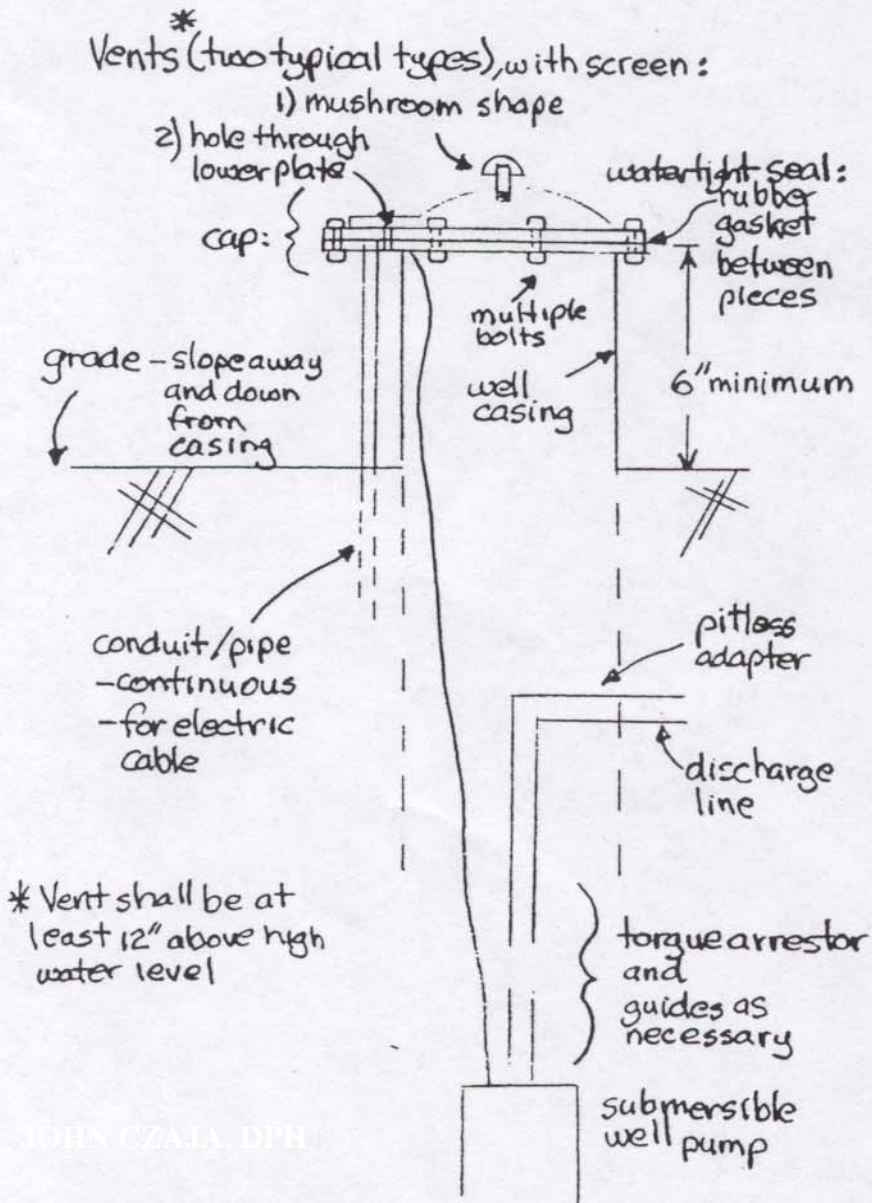 *
Vents (two typical types), with screen:
1) mushroom shape
2) hole through
lower plate
cap:
watertight seal:
rubber
gasket
between
pieces
multiple
bolts
well
casing
6" minimum
grade - slope away
and down
from
casing
conduit/pipe
- continuous
- for electric
cable
pitless
adapter
discharge
line
* Vent shall be at
least 12" above high
water level
torque arrestor
and
guides as
necessary
submersible
well pump
JOHN CZAJA, DPH